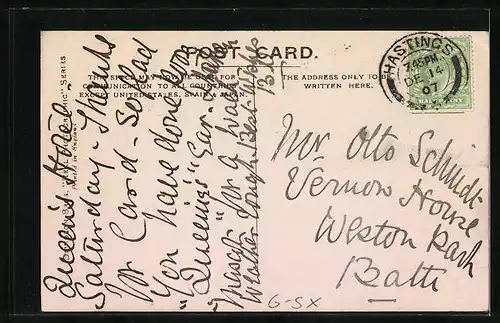 POST CARD.
THIS SPACE MAY NOW BE USED FOR
COMMUNICATION TO ALL COUNTRIES
EXCEPT UNITED STATES, SPAIN & JAPAN.
THE ADDRESS ONLY TO BE
WRITTEN HERE.
HASTINGS
7.45 PM
DE 14
07
Queen's Hotel
Saturday - Thanks
for Card - So glad
you have done
"Queenies" Ear-
Mascot for a
Weather rough. Best Wishes
Mr. Otto Schmidt
Vernon House
Weston Park
Bath
G-SX
SERIES
Printed in